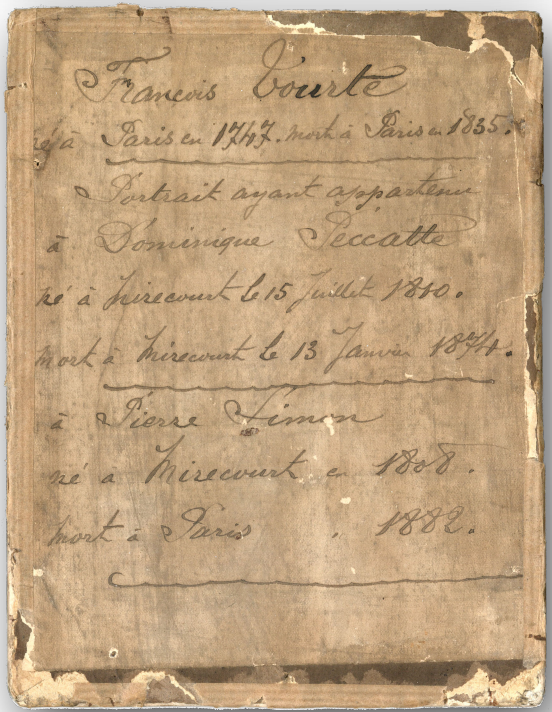 François Tourte
né à Paris en 1747. mort à Paris en 1835.
Portrait ayant appartenu
à Dominique Peccatte
né à Mirecourt le 15 Juillet 1810.
mort à Mirecourt le 13 Janvier 1874.
à Pierre Simon
né a Mirecourt en 1808.
mort à Paris " 1882.